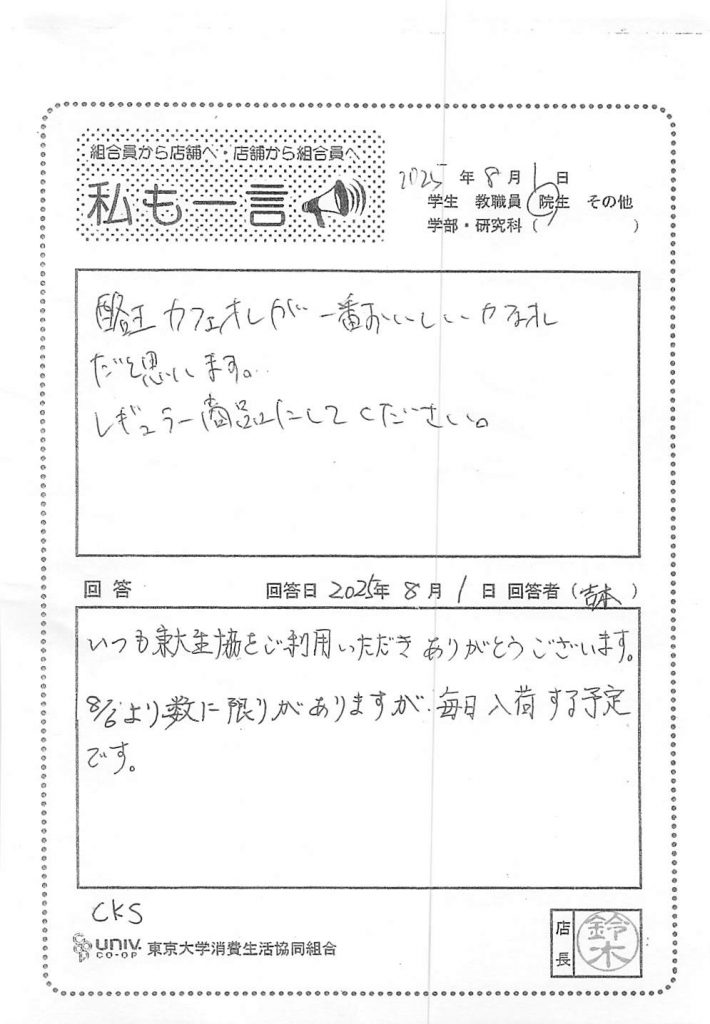 組合員から店舗へ・店舗から組合員へ
私も一言
2025年8月1日
学生 教職員 院生 その他
学部・研究科( )
酪王カフェオレが一番おいしいカフェオレ
だと思います。
レギュラー商品にしてください。
回答 回答日 2025年8月1日 回答者(吉本)
いつも東大生協をご利用いただきありがとうございます。
8/6より数に限りがありますが、毎日入荷する予定
です。
CKS
UNIV. CO-OP 東京大学消費生活協同組合
店長 鈴木